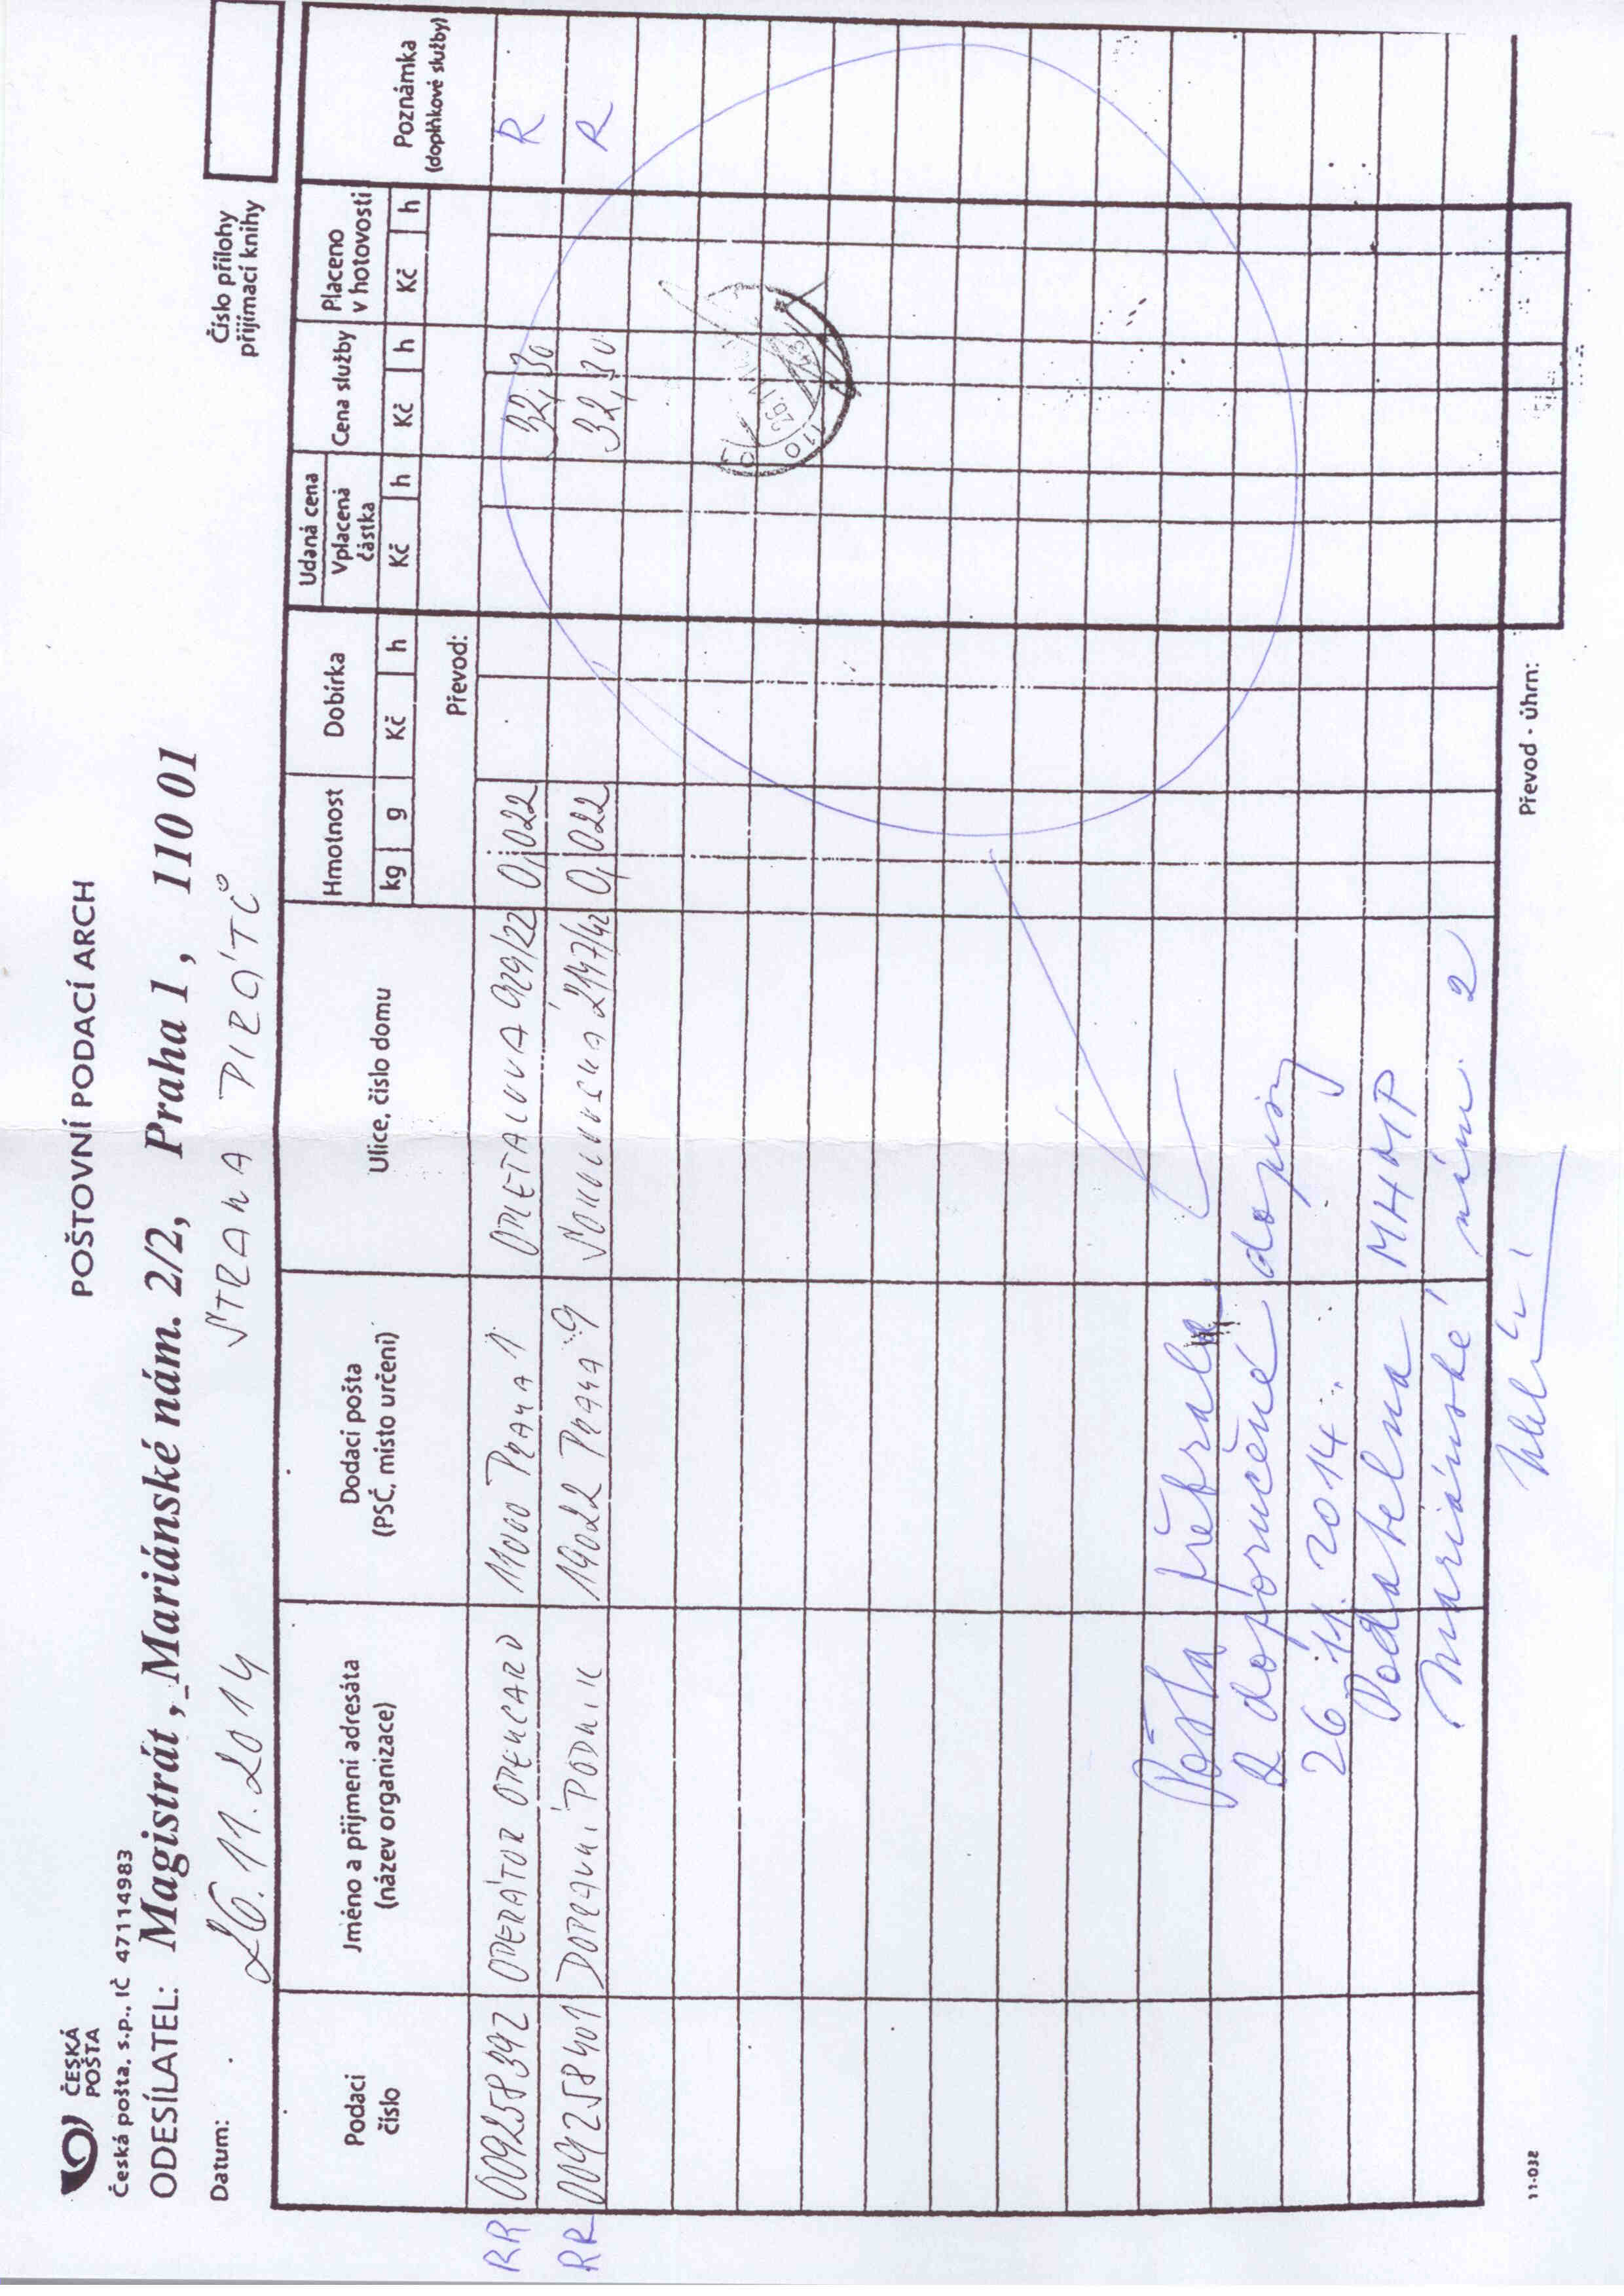 POŠTOVNÍ PODACÍ ARCH
ČESKÁ
POŠTA
Česká pošta, s.p., IČ 47114983
Číslo přílohy
přijímací knihy
ODESÍLATEL: Magistrát, Mariánské nám. 2/2, Praha 1, 110 01
Datum: 26. 11. 2014 STRANA PIRÁTŮ
Podací
číslo
Jméno a příjmení adresáta
(název organizace)
Dodací pošta
(PSČ, místo určení)
Ulice, číslo domu
Hmotnost
kg g
Dobírka
Kč h
Udaná cena
Vplacená
částka
Kč h
Cena služby
Kč h
Placeno
v hotovosti
Kč h
Poznámka
(doplňkové služby)
Převod:
RR 009258392 OPERÁTOR OPENCARD 11000 PRAHA 1 OPLETALOVA 929/22 0,022 32,30 R
RR 009258401 DOPRAVNÍ PODNIK 19022 PRAHA 9 SOKOLOVSKÁ 217/42 0,022 32,30 R
110
Pošta přebrala
2 doporučené dopisy
26. 11. 2014.
Podatelna MHMP
Mariánské nám. 2
Převod - úhrn:
11-032